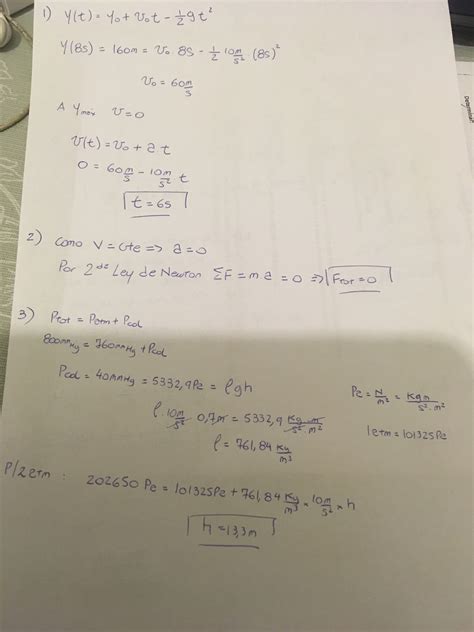 1) y(t) = y₀ + v₀t - 1/2 gt²
y(8s) = 160m = v₀ · 8s - 1/2 10m/s² (8s)²
v₀ = 60 m/s
A ymax v = 0
v(t) = v₀ + a t
0 = 60 m/s - 10 m/s² t
t = 6s
2) Como V = cte => a = 0
Por 2da Ley de Newton ΣF = m a = 0 => Ftot = 0
3) Ptot = Patm + Pcol
800mmHg = 760mmHg + Pcol
Pcol = 40mmHg = 5332,9Pa = ρgh
Pa = N/m² = Kg m/s²·m²
ρ · 10m/s² 0,7m = 5332,9 Kg·m/s²·m²
1atm = 101325Pa
ρ = 761,84 Kg/m³
P/2atm : 202650 Pa = 101325Pa + 761,84 Kg/m³ × 10m/s² × h
h = 13,3m